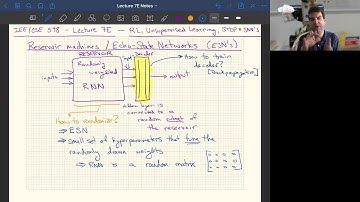 Lecture 7E Notes
IEE/CSE 598 - Lecture 7E - RL, Unsupervised Learning, STDP & SNN's
Reservoir machines / Echo-State Networks (ESN's)
RESERVOIR
Decoder
How to train decoder?
Randomly
weighted
RNN
inputs
output
[Backpropagation]
hidden layer is
connected to a
random subset of
the reservoir
How to randomize?
⇒ ESN
⇒ small set of hyperparameters that tune the
randomly drawn weights
⇒ RNN is a random matrix